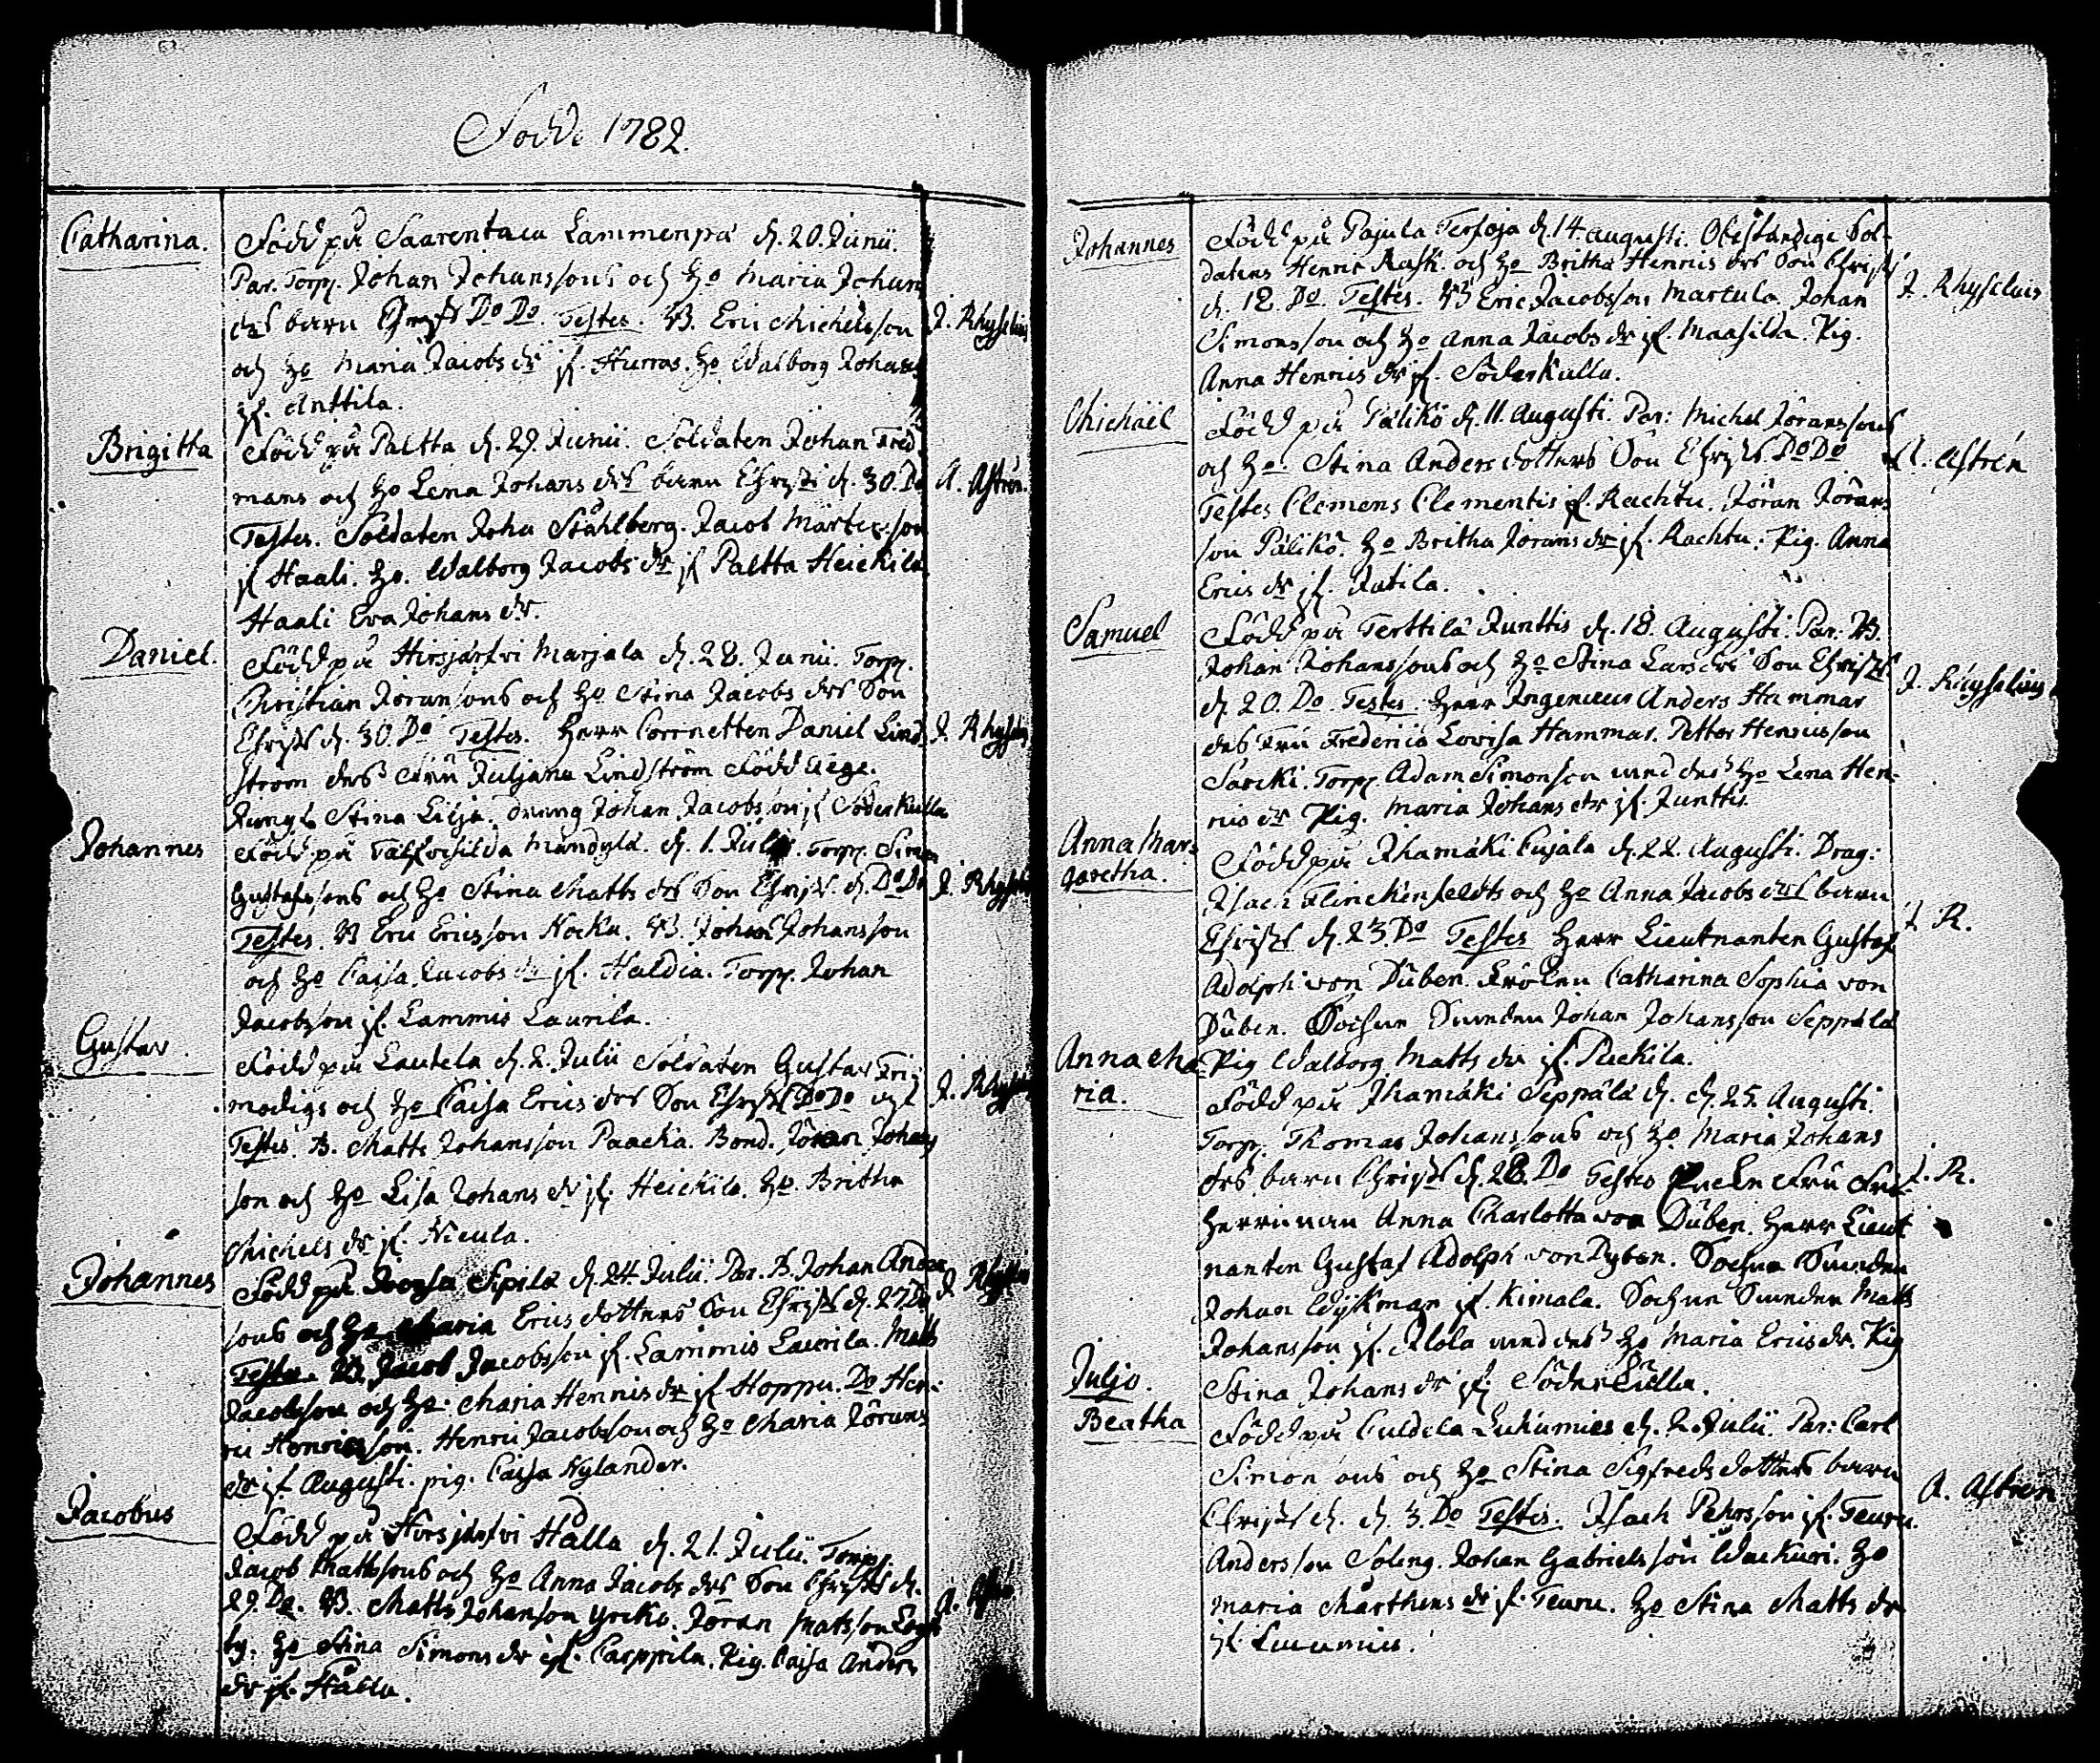 Födde 1782.
Catharina.
Född på Saarentaca Lammenpä d. 20. Junii.
Par. Torp. Johan Johanssons och Ho Maria Johans
drs barn Christ Do Do. Testes. B. Eric Michelsson
J. Rhyselius
och Ho Maria Jacobs dr if. Hurras. Ho Walborg Johans
if. Anttila.
Brigitta
Född på Paltta d. 29. Junii. Soldaten Johan Fred-
mans och Ho Lena Johans drs barn Christ d. 30. Do
A. Astrén.
Testes. Soldaten Joh Ståhlberg. Jacob Mårtensson
if Haali. Ho. Walborg Jacobs dr if Paltta Heickilä
Haali Eva Johans dr.
Daniel.
Född på Hirsjärfvi Marjala d. 28. Junii. Torp.
Christian Joransons och Ho Stina Jacobs drs Son
Christ d. 30. Do Testes. Herr Cornetten Daniel Lind-
J. Rhyselius
ström des Fru Juljana Lindström Född
Stina Lilja. Dreng Johan Jacobsson if Söderkulla
Johannes
Född på d. 1. Julii. Torp. Simon
Gustafssons och Ho Stina Matts drs Son Christ. d. Do Do
J. Rhyselius
Testes. B Eric Ericsson Nocka. B. Johan Johansson
och Ho Caisa Jacobs dr if. Haldia. Torp. Johan
Jacobsson if. Lammis Laurila.
Gustav.
Född på Lautela d. 2. Julii Soldaten Gustav Fri-
modigs och Ho Caisa Erics drs Son Christ Do Do
J. Rhyselius
Testes. B. Matts Johansson Paacka. Bond. Jöran Johans
son och Ho Lisa Johans dr if. Heickilä. Ho. Britha
Michels dr if. Nicula.
Johannes
Född på Sipilä d. 24 Julii. Par. B. Johan Anders
J. Rhyselius
sons och Ho Maria Erics dotters Son Christ d. 27 Do
Testes. B. Jacob Jacobsson if. Lammis Laurila. Matts
Jacobsson och Ho. Maria Henrics dr if Hoppu. Do Hen-
ric Henricsson. Henric Jacobsson och Ho Maria Jörans
dr if Augusti. pig. Caisa Nylander.
Jacobus
Född på Hirsjärfvi Hålla d. 21. Julii. Torp.
Jacob Mattssons och Ho Anna Jacobs drs Son Christ d.
29. Do. B. Matts Johanson Yrckö. Jöran Matsson
by. Ho Stina Simons dr if. Carppila. Pig. Caisa Anders
dr if. Hålla.
Johannes
Född på Pajula Tersoja d. 14. Augusti. Obeständige Sol-
datens Henric Rask. och Ho Britha Henrics drs Son Christ
J. Rhyselius
d. 18. Do. Testes. B Eric Jacobsson Martula. Johan
Simonsson och Ho Anna Jacobs dr if. Maasilda. Pig.
Anna Henrics dr if. Söderkulla.
Michaël
Född på Pälikö d. 11. Augusti. Par: Michel Joranssons
och Ho. Stina Anders dotters Son Christ Do Do
A. Astrén
Testes Clemens Clementis if. Rachtu. Jöran Jörans
son Pälikö. Ho Britha Jorans dr if. Rachtu. Pig. Anna
Erics dr if. Jutila.
Samuel
Född på Terttilä Junttis d. 18. Augusti. Par: B.
Johan Johanssons och Ho Stina Lars drs Son Christ
d. 20. Do Testes. Herr Ingenieur Anders Hammar
J. Rhyselius
des Fru Fredrica Lovisa Hammar. Petter Henricsson
Sarcki. Torp. Adam Simonson med des Ho Lena Hen-
rics dr Pig. Maria Johans dr if. Junttis.
Anna Mar-
garetha.
Född på Ihamäki Cujala d. 22. Augusti. Drag:
Isach Flinckenfeldts och Ho Anna Jacobs drs barn
Christ d. 23. Do Testes Herr Lieutnanten Gustaf
J. R.
Adolph von Düben. Fröken Catharina Sophia von
Düben. Sochne Smeden Johan Johansson Seppälä
Pig Walborg Matts dr if. Puckila.
Anna Ma-
ria.
Född på Ihamäki Seppälä d. d. 25. Augusti.
Torp. Thomas Johanssons och Ho Maria Johans
drs barn Christ d. 28. Do Testes Encke Fru Fri-
J. R.
herrinnan Anna Charlotta von Düben. Herr Lieut
nanten Gustaf Adolph von Dyben. Sochne Smeden
Johan Wijkman if. Kimala. Sochne Smeden Matts
Johansson if. Alola med des Ho Maria Erics dr. Pig
Stina Johans dr if. Söderkulla.
Juljo.
Beatha
Född på Culdela Luhumies d. 2. Julii. Par: Carl
Simonsons och Ho Stina Sigfreds dotters barn
Christ d. d. 3. Do Testes. Isach Pehrsson if. Teuru.
A. Astrén
Andersson Soling. Johan Gabrielsson Wackuri. Ho
Maria Marthens dr if. Teuru. Ho Stina Matts dr
if.